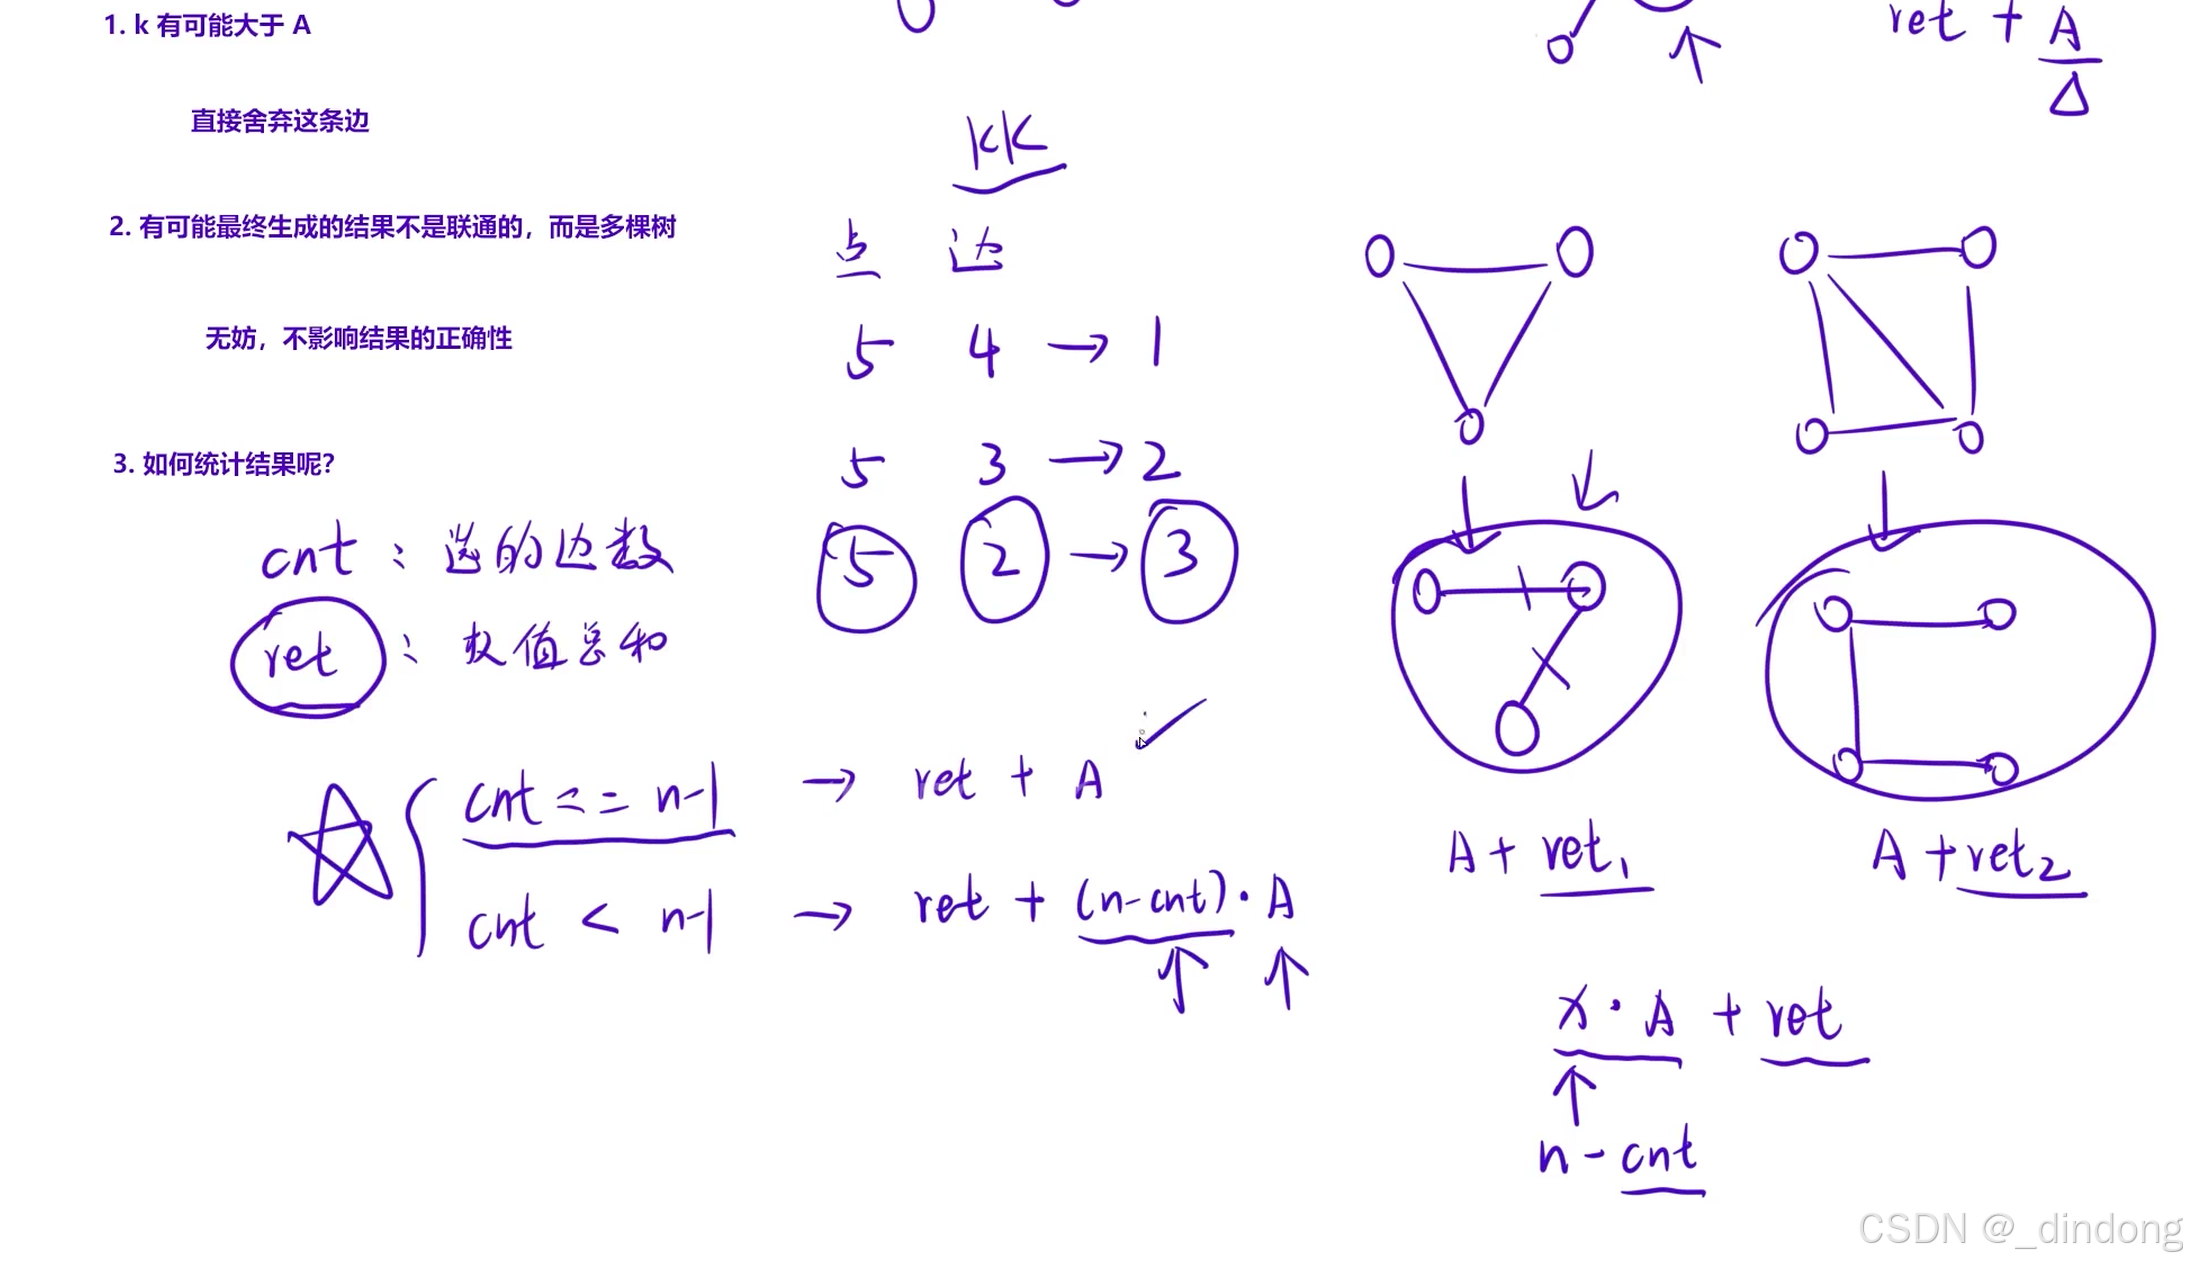 1. k 有可能大于 A
直接舍弃这条边
2. 有可能最终生成的结果不是联通的，而是多棵树
无妨，不影响结果的正确性
3. 如何统计结果呢？
cnt：选的边数
ret：权值总和
cnt == n-1 → ret + A
cnt < n-1 → ret + (n-cnt)·A
kk
点 边
5 4 → 1
5 3 → 2
5 2 → 3
ret + A
Δ
A + ret₁
A + ret₂
x · A + ret
n - cnt
CSDN @_dindong